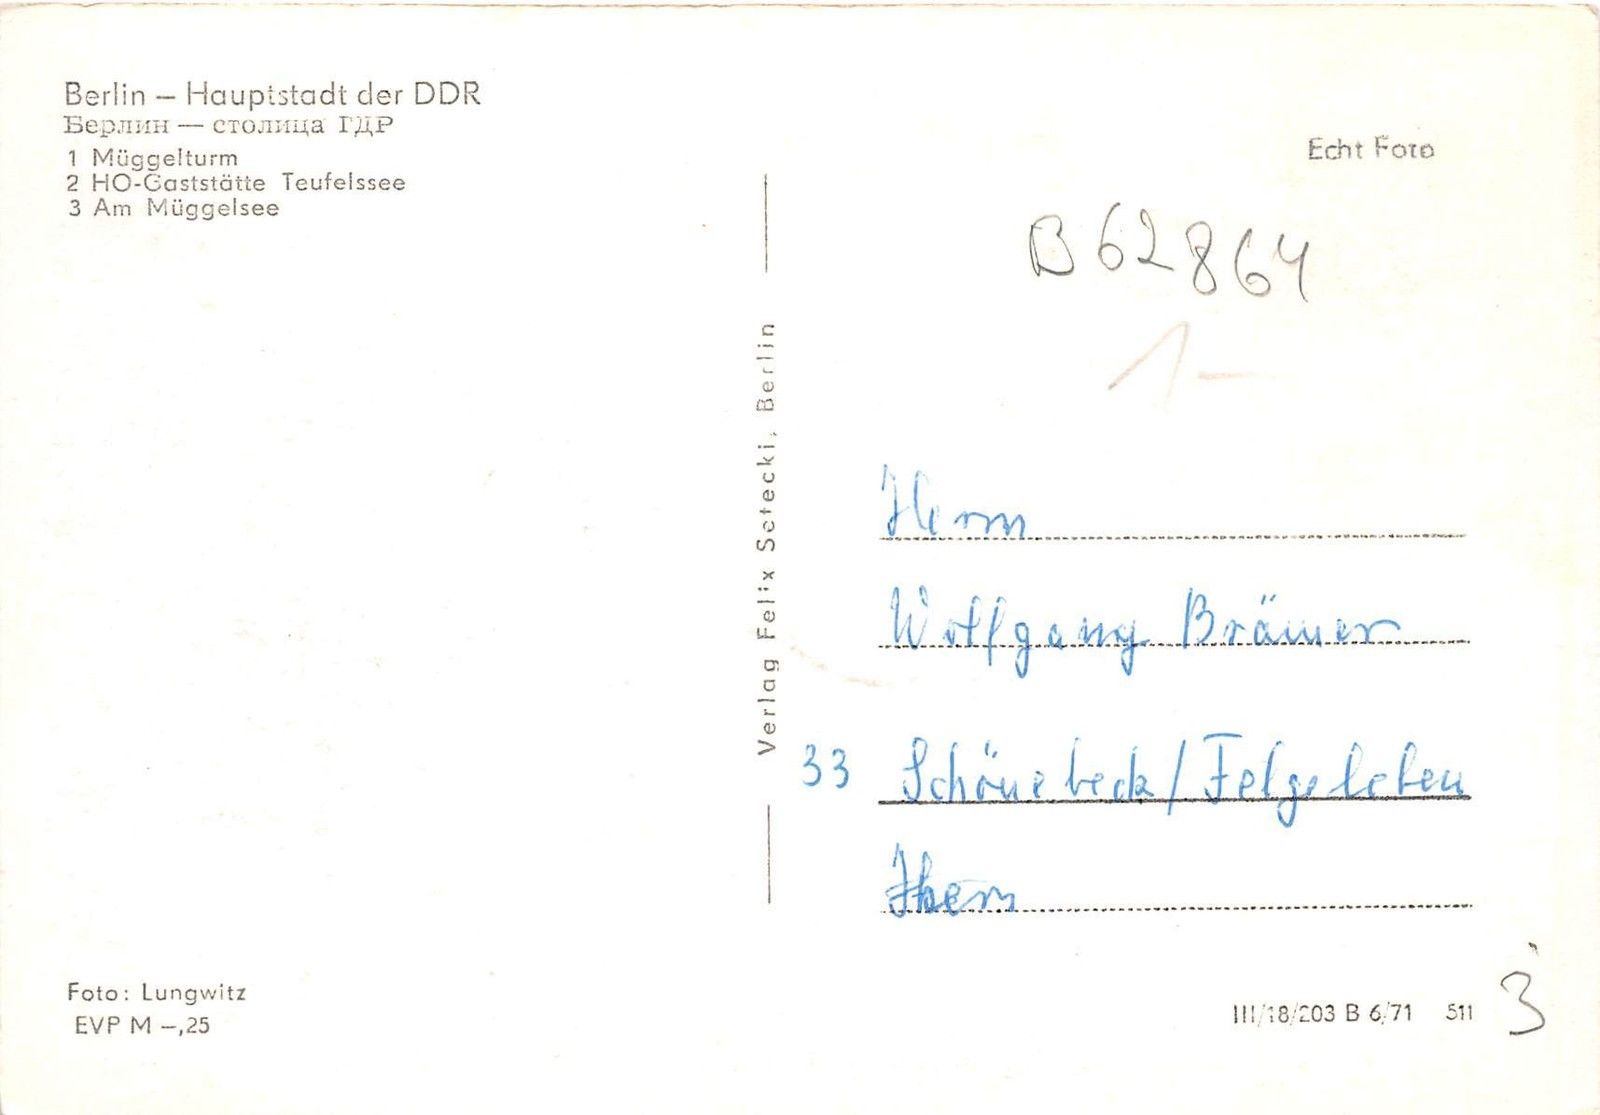 Berlin – Hauptstadt der DDR
Берлин — столица ГДР
1 Müggelturm
2 HO-Gaststätte Teufelssee
3 Am Müggelsee
Echt Foto
B 62864
1 –
Verlag Felix Setecki, Berlin
Herrn
Wolfgang Brämer
33 Schönebeck/Felgeleben
Foto: Lungwitz
EVP M –,25
III/18/203 B 6/71 511
3